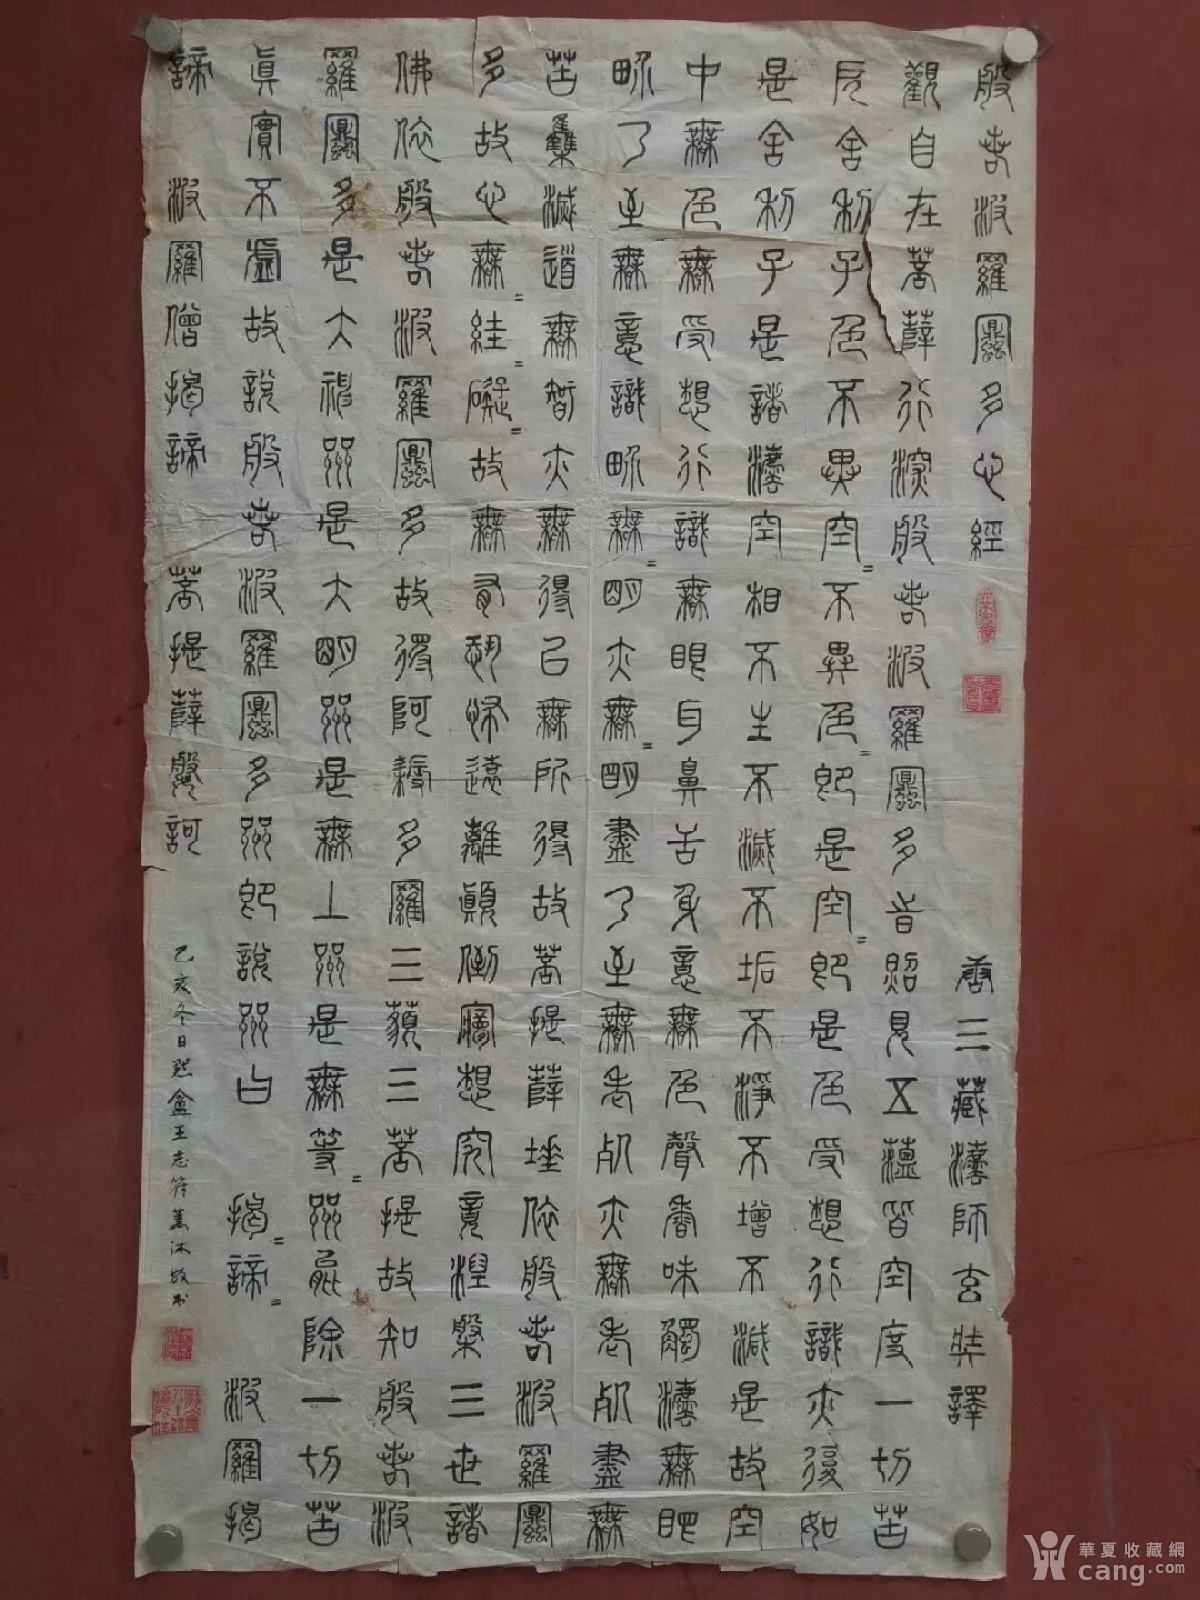 般若波羅蜜多心經
唐三藏法師玄奘譯
觀自在菩薩行深般若波羅蜜多時照見五蘊皆空度一切苦
厄舍利子色不異空=不異色=即是空=即是色受想行識亦復如
是舍利子是諸法空相不生不滅不垢不淨不增不減是故空
中無色無受想行識無眼耳鼻舌身意無色聲香味觸法無眼
界乃至無意識界無=明亦無=明盡乃至無老死亦無老死盡無
苦集滅道無智亦無得以無所得故菩提薩埵依般若波羅蜜
多故心無=罣=礙=故無有恐怖遠離顛倒夢想究竟涅槃三世諸
佛依般若波羅蜜多故得阿耨多羅三藐三菩提故知般若波
羅蜜多是大神咒是大明咒是無上咒是無等=咒能除一切苦
眞實不虛故說般若波羅蜜多咒即說咒曰 揭=諦= 波羅揭
諦 波羅僧揭諦 菩提薩婆訶
乙亥冬日熙盦王志符薰沐敬書
華夏收藏網
cang.com